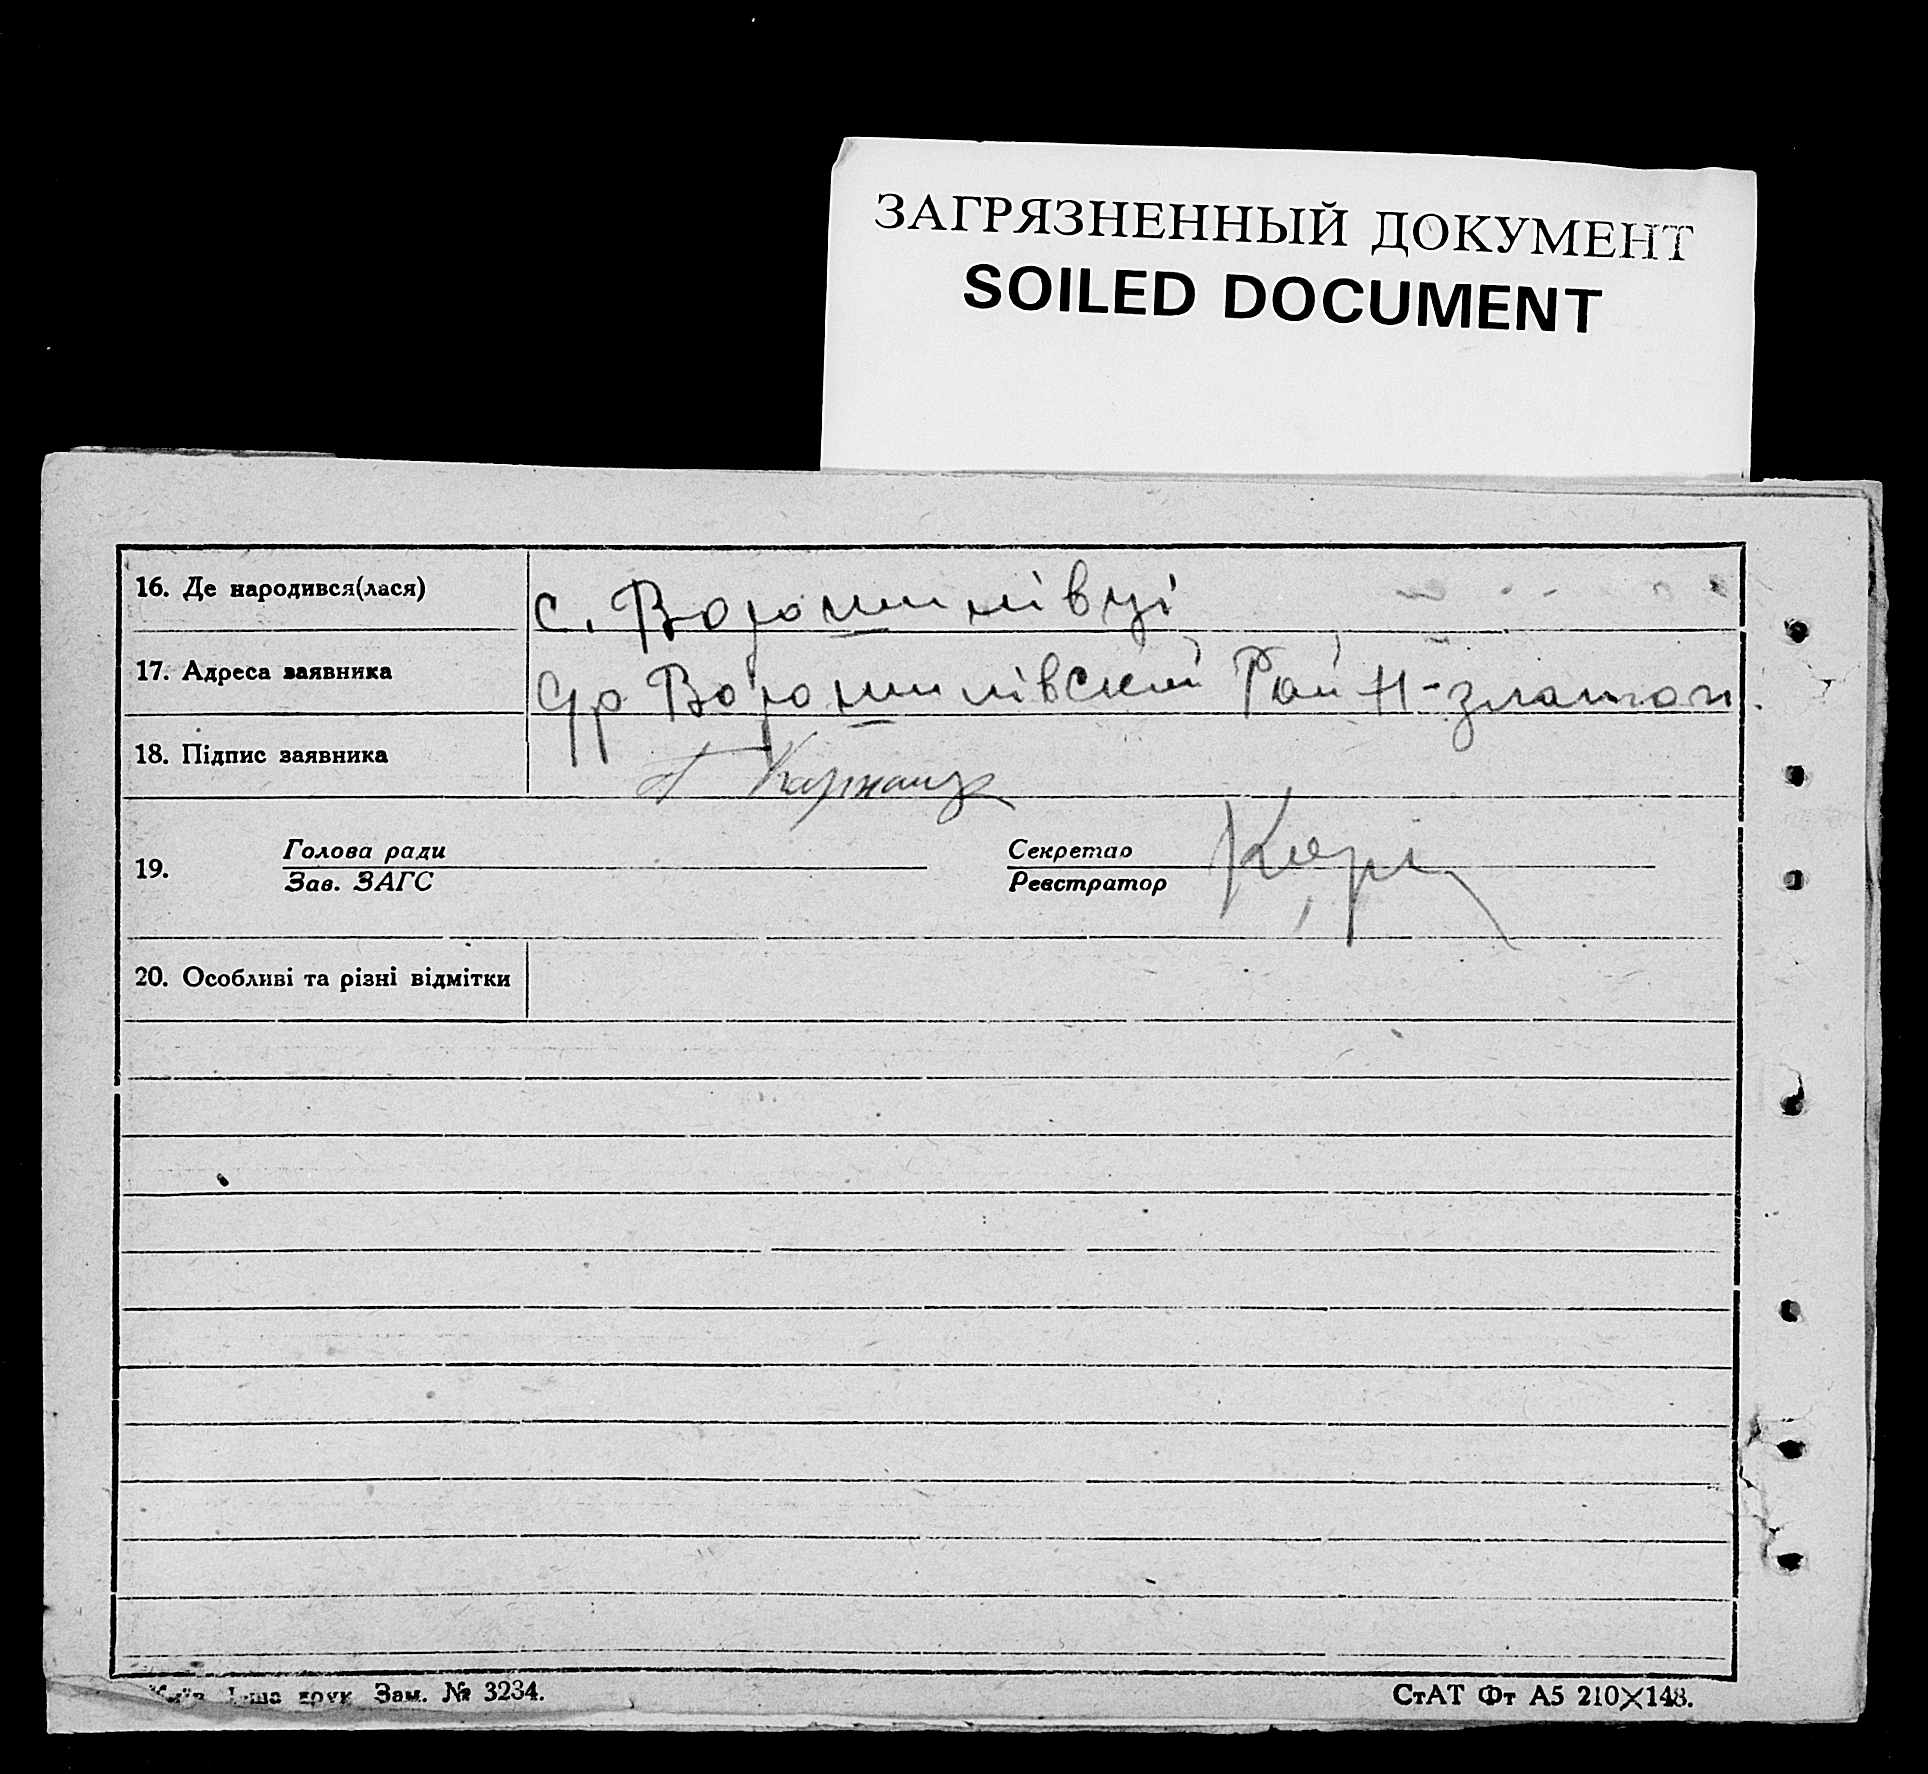 ЗАГРЯЗНЕННЫЙ ДОКУМЕНТ
SOILED DOCUMENT
16. Де народився(лася) с. Ворошилівці
17. Адреса заявника Ворошилівскій Рай Н-златоп.
18. Підпис заявника
19. Голова ради Секретар
Зав. ЗАГС Реєстратор
20. Особливі та різні відмітки
Зам. № 3234.
СтАТ Фт А5 210×148.